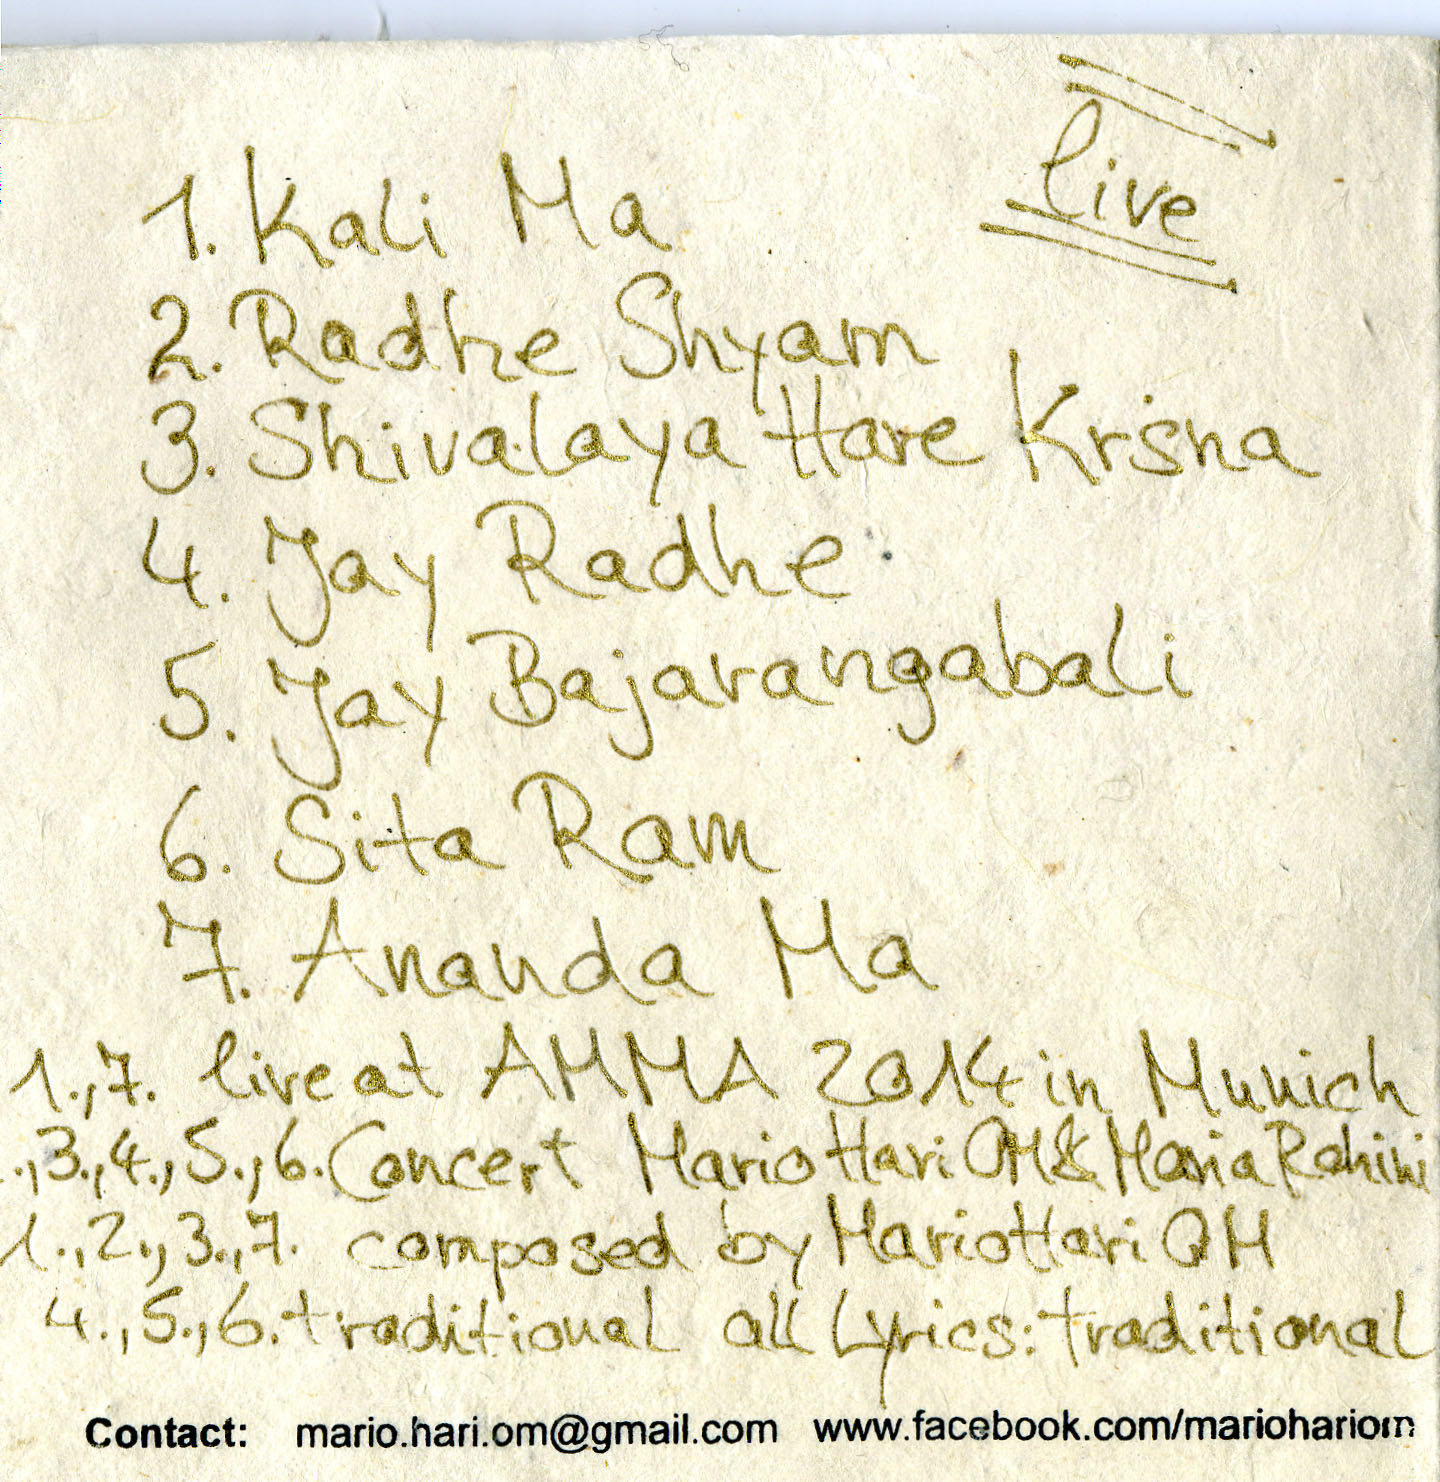 live
1. Kali Ma
2. Radhe Shyam
3. Shivalaya Hare Kŕsna
4. Jay Radhe
5. Jay Bajarangabali
6. Sita Ram
7. Ananda Ma
1.,7. live at AMMA 2014 in Munich
.,3.,4.,5.,6. Concert Mario Hari OM & Maria Rohini
1.,2.,3.,7. composed by Mario Hari OM
4.,5.,6. traditional all Lyrics: traditional
Contact: mario.hari.om@gmail.com www.facebook.com/mariohariom